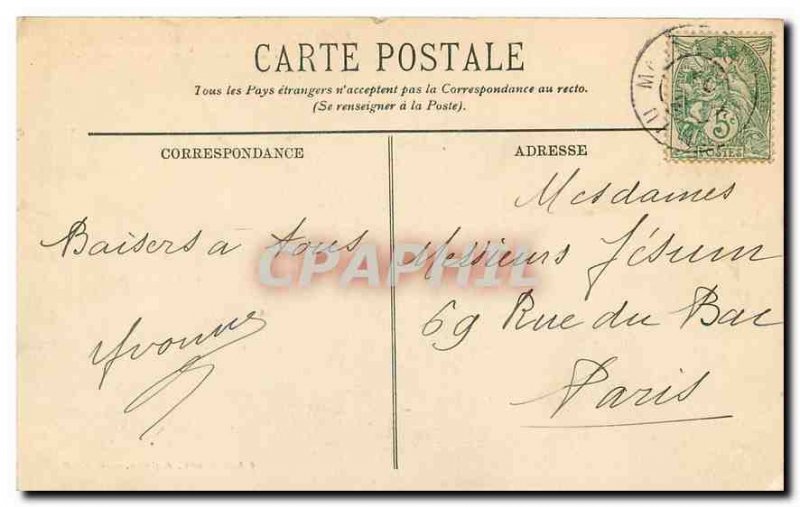 CARTE POSTALE
Tous les Pays étrangers n'acceptent pas la Correspondance au recto.
(Se renseigner à la Poste).
CORRESPONDANCE
ADRESSE
5c
POSTES
Baisers a tous
Yvonne
Mesdames
Messieurs Jésum
69 Rue du Bac
Paris
CPAPHIL